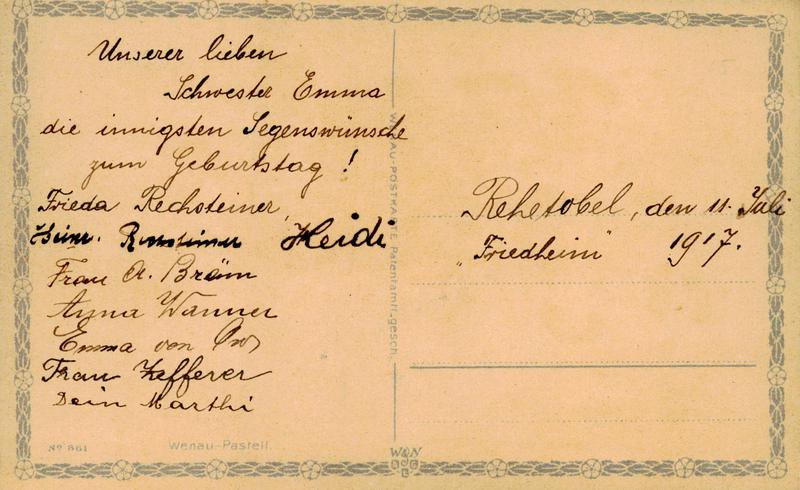 Unserer lieben
Schwester Emma
die innigsten Segenswünsche
zum Geburtstag!
Frieda Rechsteiner,
Heinr. Rechsteiner Heidi
Frau A. Bräm
Anna Wanner
Emma von
Frau Zefferer
Dein Marthi
No 861
Wenau-Pastell.
WENAU-POSTKARTE Patentamtl. gesch.
W&N
Rehetobel, den 11. Juli
„Friedheim" 1917.